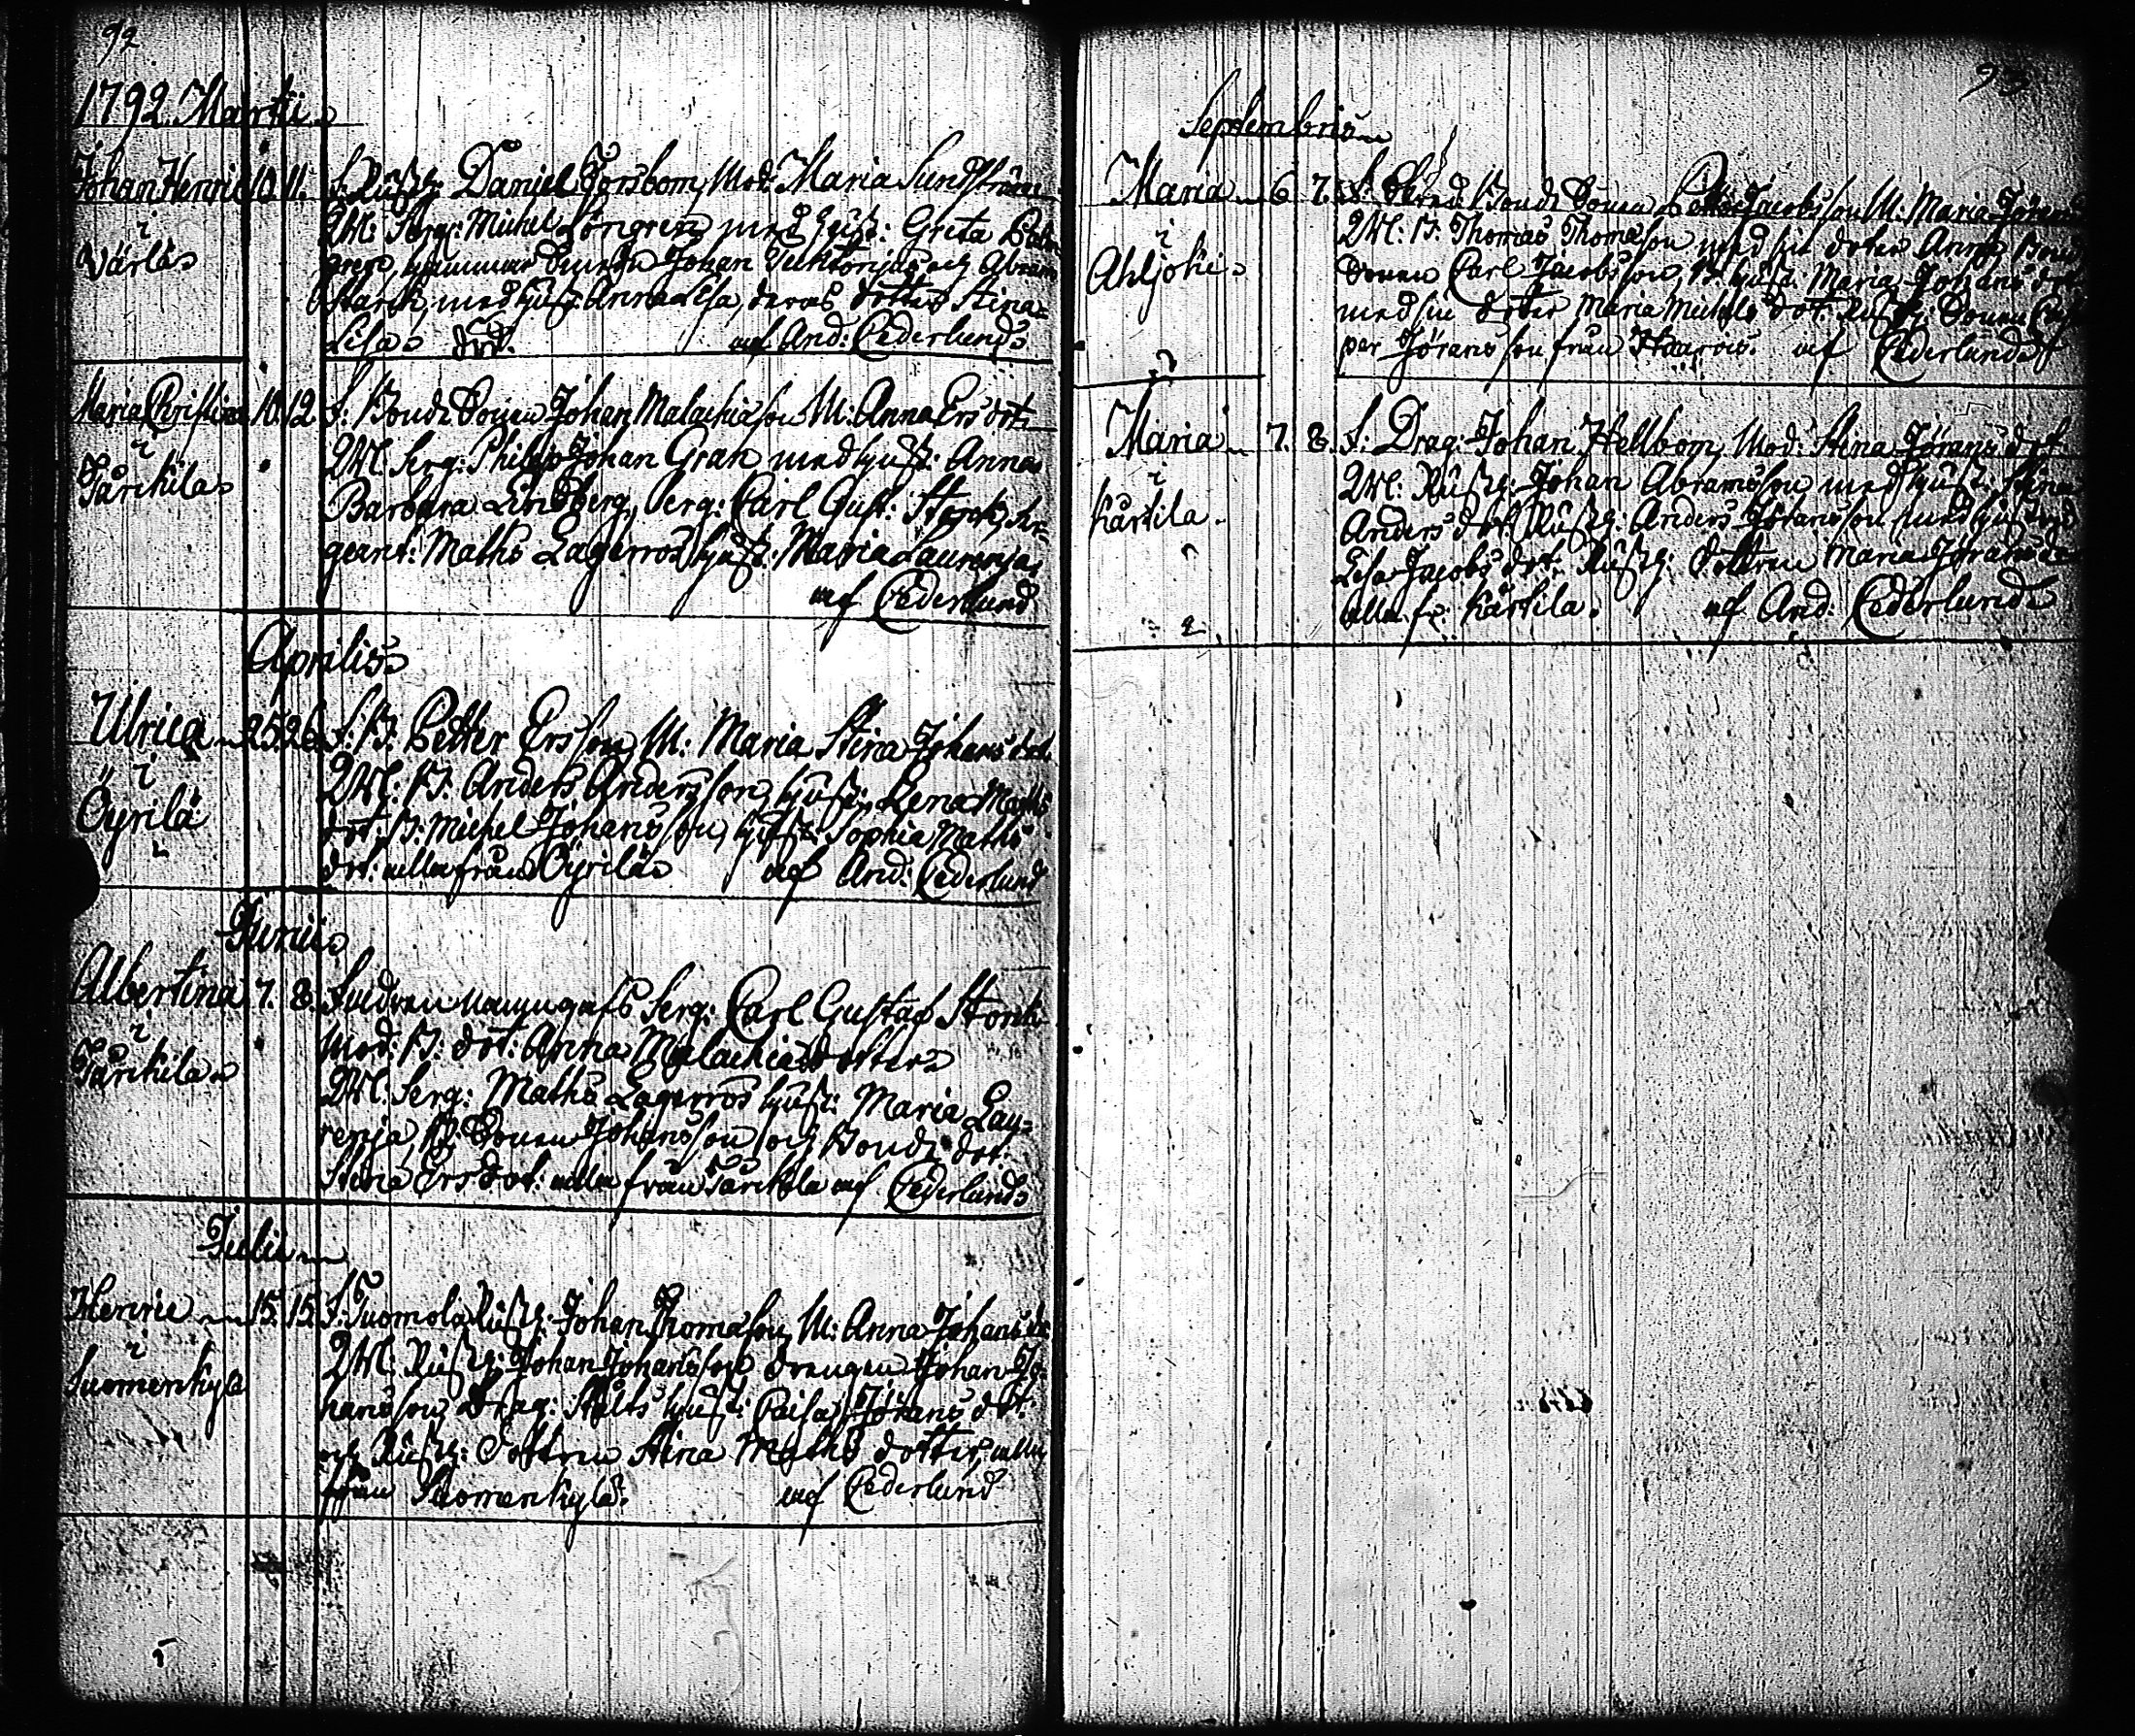 92
1792. Martii
Johan Henric 10. 11. F. Rustg: Daniel Forsbom, Mod: Maria Sundström
i
Wärlä
Serg: Michel Löngren med hust: Greta
Johan och Abram
Starck, med hust: Anna Lisa, deras dotter Stina
Lisa dot. af And: Cederlund
Maria Christina 10. 12. F: Bonde Sonen Johan Malachiason M: Anna Ersdot:
i
Tärckila
Serg: Philip Johan Gran med hust: Anna
Barbara Lindberg, Serg: Carl Gust: Storck, Ser-
geant: Maths Lagerros hust: Maria Laurenja
af Cederlund
Aprilis
Ulrica 25. 26. F: B. Petter Ersson, M: Maria Stina Johans dot.
i
Öyrilä
B: Anders Andersson, hust: Lena Maths
dot: B: Michel Johansson, hust: Sophia Maths
dot: alla från Öyrilä af And: Cederlund
Junii
Albertina 7. 8. Fadren Serg: Carl Gustaf Storck
i
Tärckila
Mod: B. dot: Anna Malachiæ dotter
Serg: Maths Lagerros hust: Maria Lau-
renja, B: Sonen Johansson och Bonde dot:
Stina Ersdot: alla från Tärckila af Cederlund
Julii
Henric 15. 15. F: Tuomola Rustg: Johan Thomason, M: Anna Johans dr
i
Suomenkylä
Rustg: Johan Johansson drengen Johan Jo-
hansson, Drag: Stålts hust: Caisa Jörans dot:
och Rustg: Dottren Stina Maths dotter, alla
från Suomenkylä. af Cederlund
5
93
Septembris
Maria 6. 7. F. Bonde Sonen Petter Jacobsson M: Maria Jörans
i
Ahljoki
B: Thomas Thomason med sin doter Anna, Bond
Sonen Carl Jacobsson, B. hust: Maria Johans dot
med sin doter Maria Michels dot: Rustg: Sonen Cas
per Jöransson från af Cederlund
2
Maria 7. 8. F: Drag: Johan Hellbom, Mod: Stina Jörans dot
i
Kärkila
Rustg: Johan Abramsson med hust: Stina
Anders dot: Rustg: Anders Johansson med hustru
Lisa Jacobs dot. Rustg: dottren Maria Jörans do
alla fr: Kärkila. af And: Cederlund
2